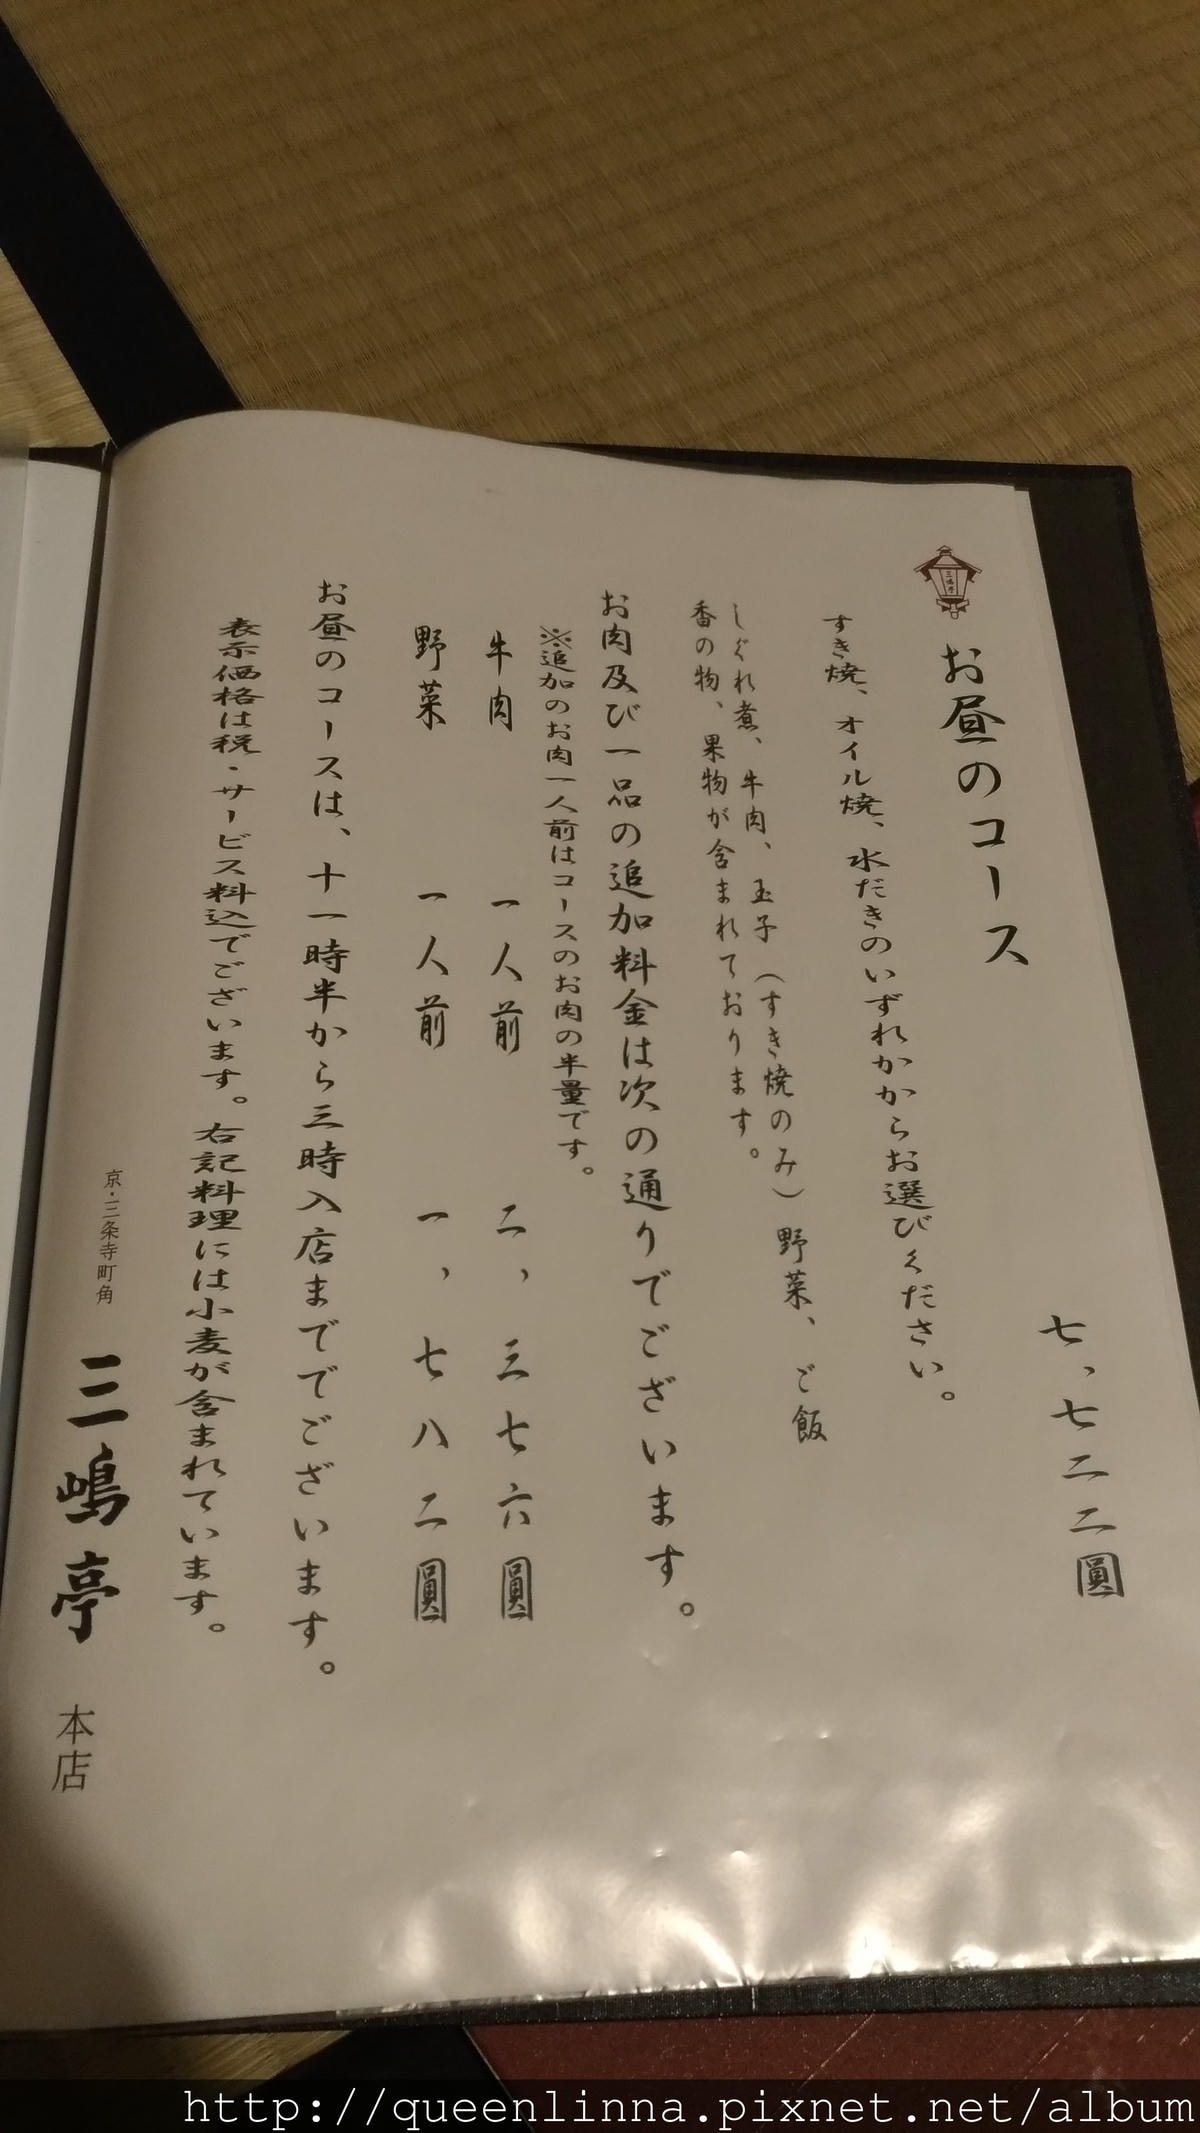 三嶋亭
お昼のコース　七、七二二圓
すき焼、オイル焼、水だきのいずれかからお選びください。
しぐれ煮、牛肉、玉子（すき焼のみ）野菜、ご飯
香の物、果物が含まれております。
お肉及び一品の追加料金は次の通りでございます。
※追加のお肉一人前はコースのお肉の半量です。
牛肉　一人前　二、三七六圓
野菜　一人前　一、七八二圓
お昼のコースは、十一時半から三時入店まででございます。
表示価格は税・サービス料込でございます。右記料理には小麦が含まれています。
京・三条寺町角　三嶋亭　本店
http://queenlinna.pixnet.net/album